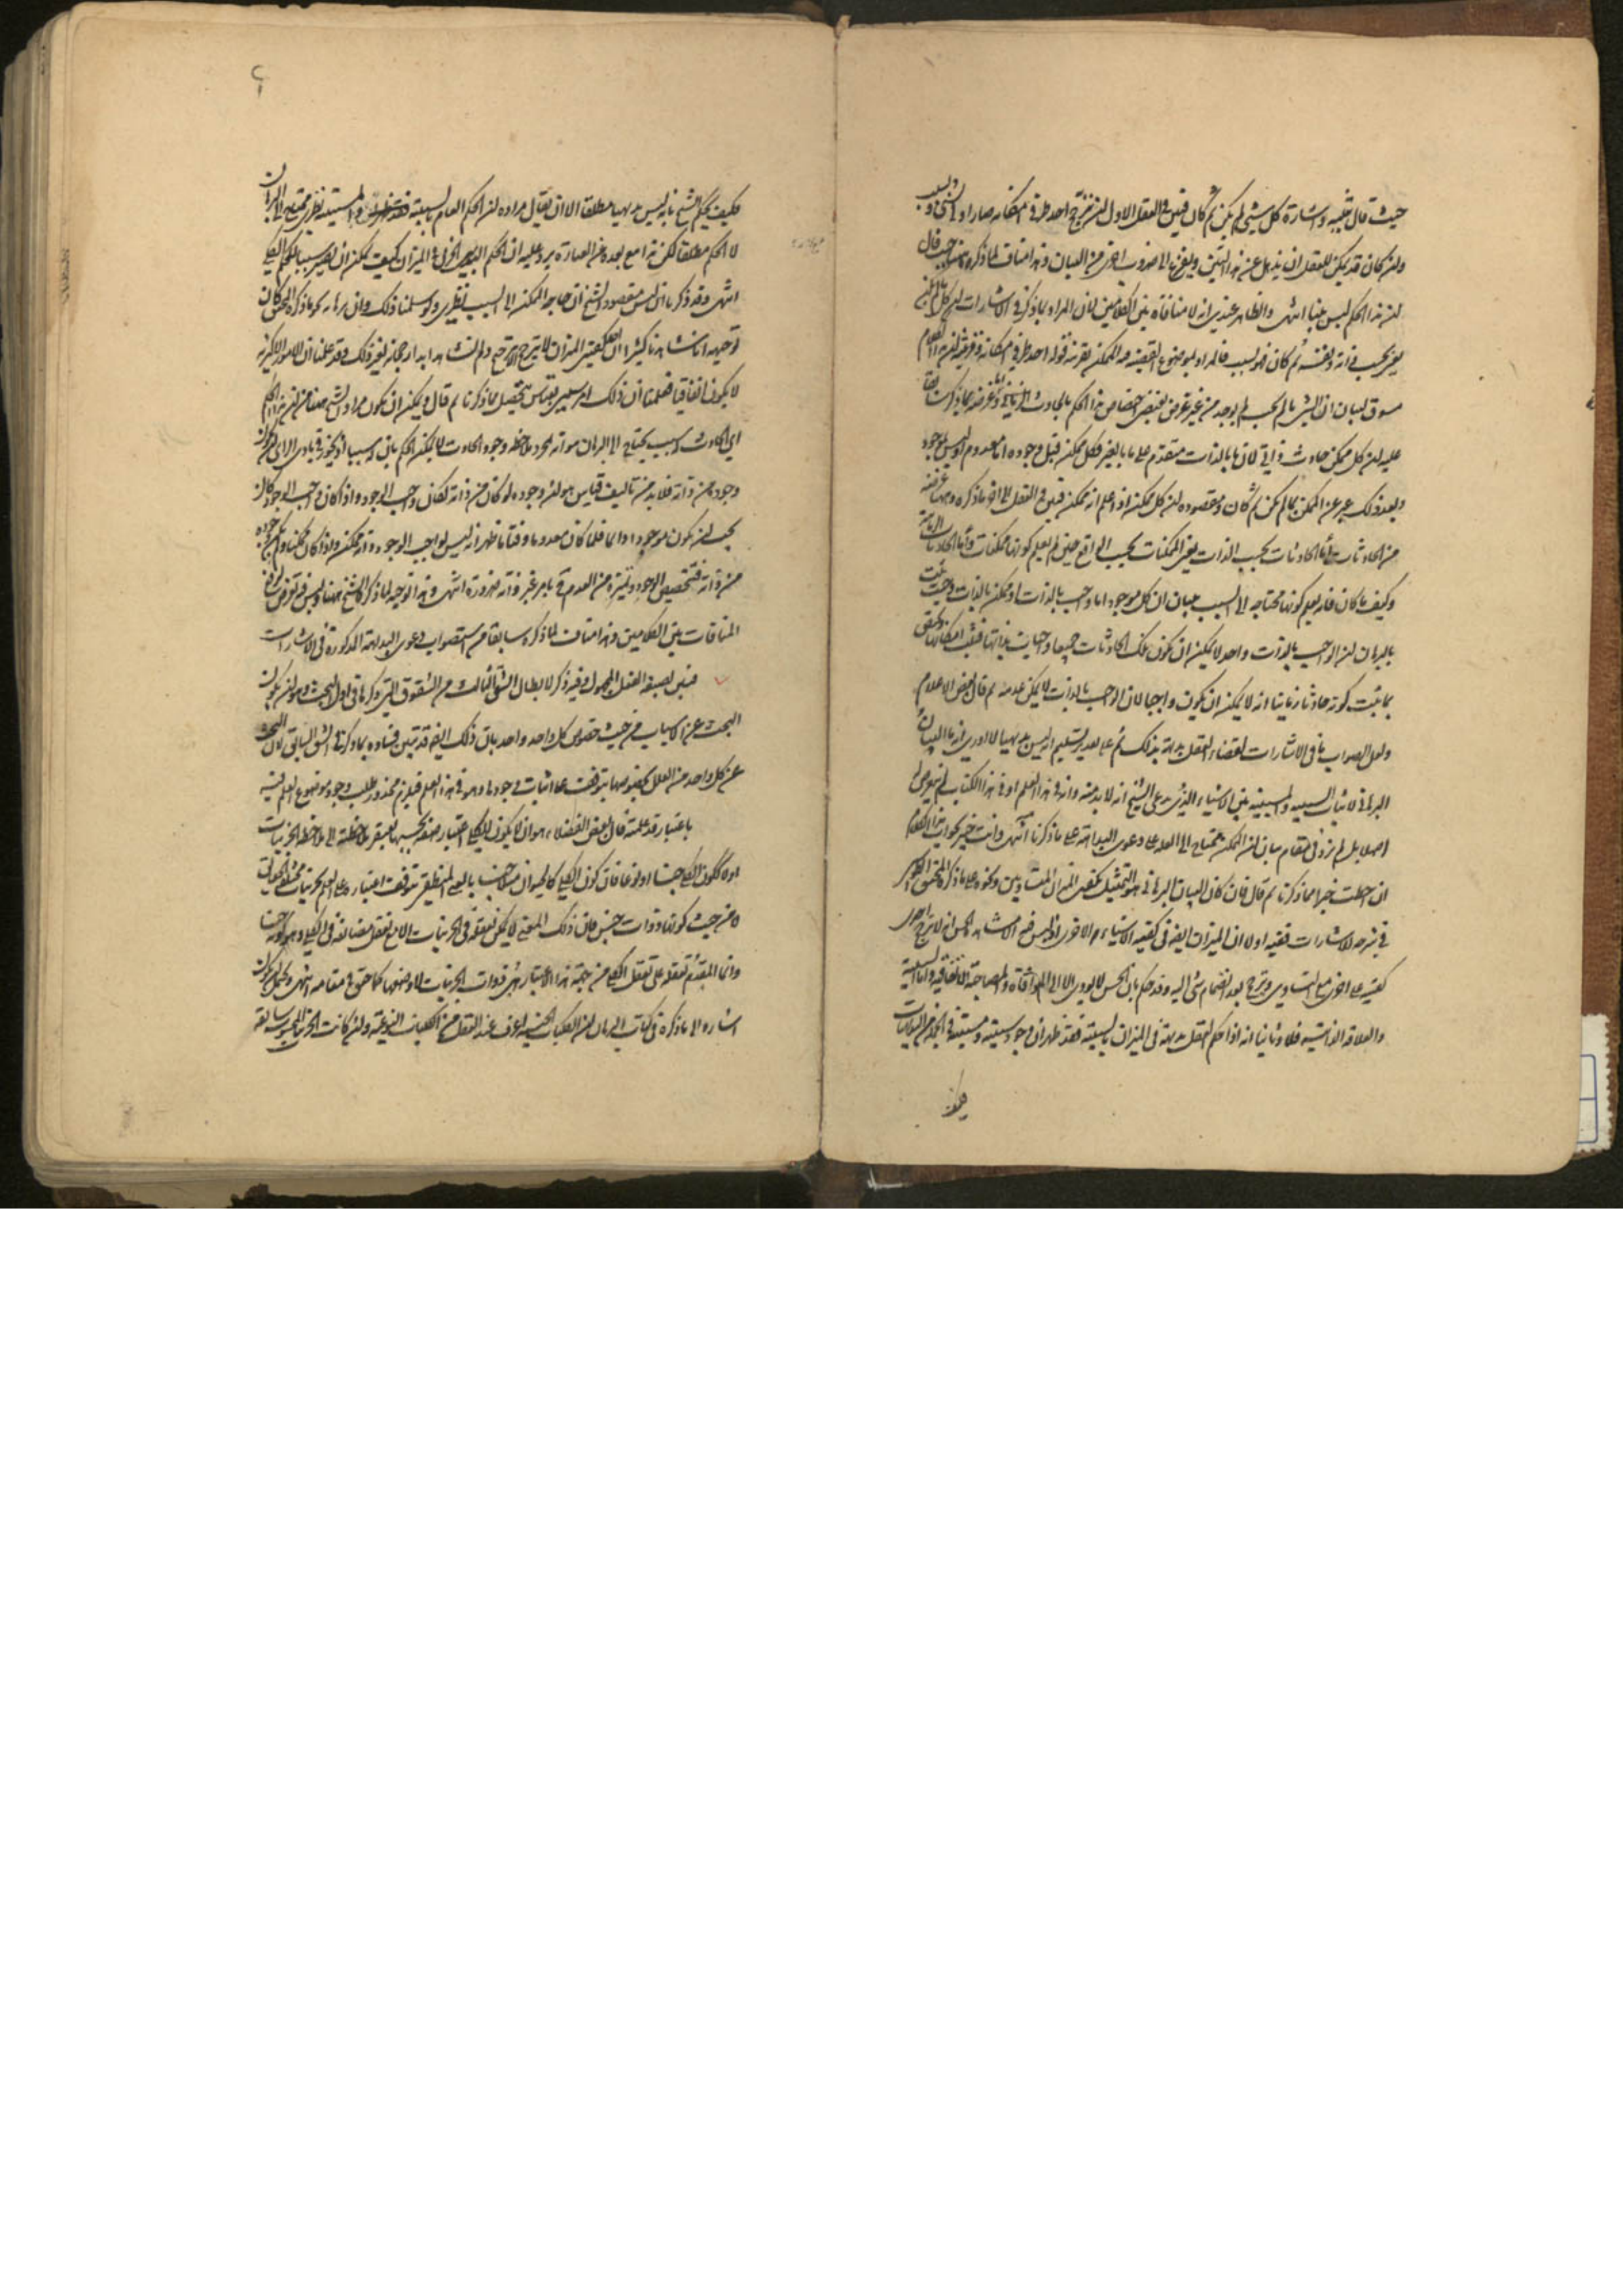 حيث قال تنبيه واشارة كل شيء لم يكن ثم كان فبين في العقل الاول ان ترجح احد طرفي امكانه صار اولى بشيء وبسبب
وان كان قد يمكن للعقل ان يذهل عن هذا البين ويفزع الى ضروب اخرى من البيان وهذا مناف لما ذكره قال
ان هذا الحكم ليس بينا انتهى والظاهر عندي انه لا منافاة بين الكلامين لان المراد بما ذكر في الاشارات ان كل
يجب في ذاته ونفسه ثم كان فهو لسبب فالمراد بموضوع القضية هو الممكن بقرينة قوله احد طرفي امكانه وقرينة ان هذا الكلام
مسوق لبيان ان الشيء ما لم يجب لم يوجد من غير غرض يقتضي اختصاص هذا الحكم بالحادث الزماني
عليه ان كل ممكن حادث ذاتي لان ما بالذات متقدم على ما بالغير فكل ممكن قبل وجوده اما معدوم او ليس بموجود
وبعد ذلك عبر عن الممكن بما لم يكن ثم كان ومقصوده ان كل ممكن اذا علم انه ممكن فبين في العقل الى اخر ما ذكره وههنا غرضه
من الحادثات الحادثات بحسب الذات يعني الممكنات بحسب الواقع حين لم يعلم كونها ممكنات
وكيف ما كان فانه يعلم كونها محتاجة الى السبب ببيان ان كل موجود اما واجب بالذات او ممكن بالذات وحيث ثبت
بالبرهان ان الواجب بالذات واحد لا يمكن ان يكون تلك الحادثات جميعا واجبات بذاتها فثبت امكانها
بما يثبت كونه حادثا زمانيا انه لا يمكن ان يكون واجبا لان الواجب بالذات لا يمكن عدمه ثم قال بعض الاعلام
ولعل الصواب ما في الاشارات لقضاء العقل بديهة بذلك ثم على بعد تسليم انه ليس بديهيا لا ادري انه ما البيان
البرهاني لاثبات السببية والمسببية بين الاشياء الذي يدعي الشيخ انه لا بد منه وانه في هذا العلم او في هذا الكتاب لم يتعرض
اصلا بل لم يزد في مقام بيان ان الممكن محتاج الى العلة على دعوى البداهة على ما ذكرنا انتهى وانت خبير بجواب هذا الكلام
ان احطت خبرا بما ذكرنا ثم قال فان كان البيان البرهاني هو التمثيل بكفتي الميزان المتساويين ونحوه على ما ذكره المحقق
في شرحه للاشارات ففيه اولا ان الميزان ايضا في كفتيه الاشياء الاخرى اذ ليس فيه الا مشاهدة الحس انه لا يترجح احدى
كفتيه على اخرى مع التساوي وترجح بعد انضمام شيء اليه وقد حكم بان الحس لا يؤدي الا الى الموافاة والمصاحبة الاتفاقية واما السببية
والعلاقة الذاتية فلا وثانيا انه اذا حكم العقل بديهة في الميزان بالسببية فقد ظهر ان وجود سببية ومسببية في الجملة من البديهيات
فكيف
فكيف يحكم الشيخ بانه ليس بديهيا مطلقا الا ان يقال مراده ان الحكم العام بالسببية والمسببية نظري محتاج الى البرهان
لا الحكم مطلقا لكن هذا مع بعده من العبارة يرد عليه ان الحكم الجزئي في الميزان كيف يمكن ان يصير سببا للحكم الكلي
انتهى وقد ذكرنا ان ليس مقصود الشيخ ان حاجة الممكن الى السبب نظري ولو سلمنا ذلك وان برهانه نحو ما ذكره المحقق كان
توجيهه انا شاهدنا كثيرا ان كفتي الميزان لا يترجح الا بمرجح ولم نشاهد ابدا رجحانه بغير ذلك وقد علمنا ان الامور الاكثرية
لا يكون اتفاقيا فعلمنا ان ذلك امر بقياس يتحصل مما ذكرنا ثم قال ويمكن ان يكون مراد الشيخ ههنا من ان هذا الحكم
اي الحادث له سبب يحتاج الى البرهان هو انه بمجرد ملاحظة وجود الحادث لا يمكن الحكم بان له سببا اذ يجوز في بادي الراي ان يكون
وجوده من ذاته فلا بد من تاليف قياس هو ان وجوده لو كان من ذاته لكان واجب الوجود واذا كان واجب الوجود كان
يجب ان يكون موجودا دائما فلما كان معدوما وقتا ما ظهر انه ليس بواجب الوجود وانه ممكن واذا كان ممكنا ولم يكن وجوده
من ذاته فتخصيص الوجود وتميزه من العدم في بامر غير ذاته ضرورة انتهى وهذا توجيه لما ذكره الشيخ ههنا وليس فيه تعرض
المنافات بين الكلامين وهذا مناف لما ذكره سابقا من استصواب دعوى البداهة المذكورة في الاشارات
فبين بصيغة الفعل المجهول وفيه ذكر لابطال الشق الثالث من الشقوق التي ذكرها في اول البحث وهو ان يكون
البحث عن الاسباب من حيث خصوص كل واحد واحد بان ذلك ايضا قد تبين فساده بما ذكرنا في الشق السابق لان البحث
عن كل واحد من العلل بخصوصها يتوقف على اثبات وجودها وهو في هذا العلم فيلزم محذور طلب وجود موضوع العلم فيه
باعتبار قد علمته قال بعض الفضلاء هو ان لا يكون للكلي اعتبار صفة بحسبها يفتقر ملاحظته الى ملاحظة الجزئيات
اولا ككون الكلي جنسا او نوعا فان كون الكلي كالحيوان مثلا جنسا بالمعنى المنطقي يتوقف اعتباره على العلم بجزئيات مختلفة الحقايق
لا من حيث كونها ذوات جنس فان ذلك المعنى لا يمكن تعقله في الجزئيات الا مع تعقل مضايفه في الكلي وهو كونه جنسا
وانما المقدم تعقله على تعقل الكلي من جهة هذا الاعتبار هي ذوات الجزئيات لا وصفها كما حقق في مقامه انتهى ويحتمل ان يكون
اشارة الى ما ذكره في كتاب البرهان ان الكليات الجنسية اعرف عند العقل من الكليات النوعية وان كانت الجزئيات المحسوسة سابقة